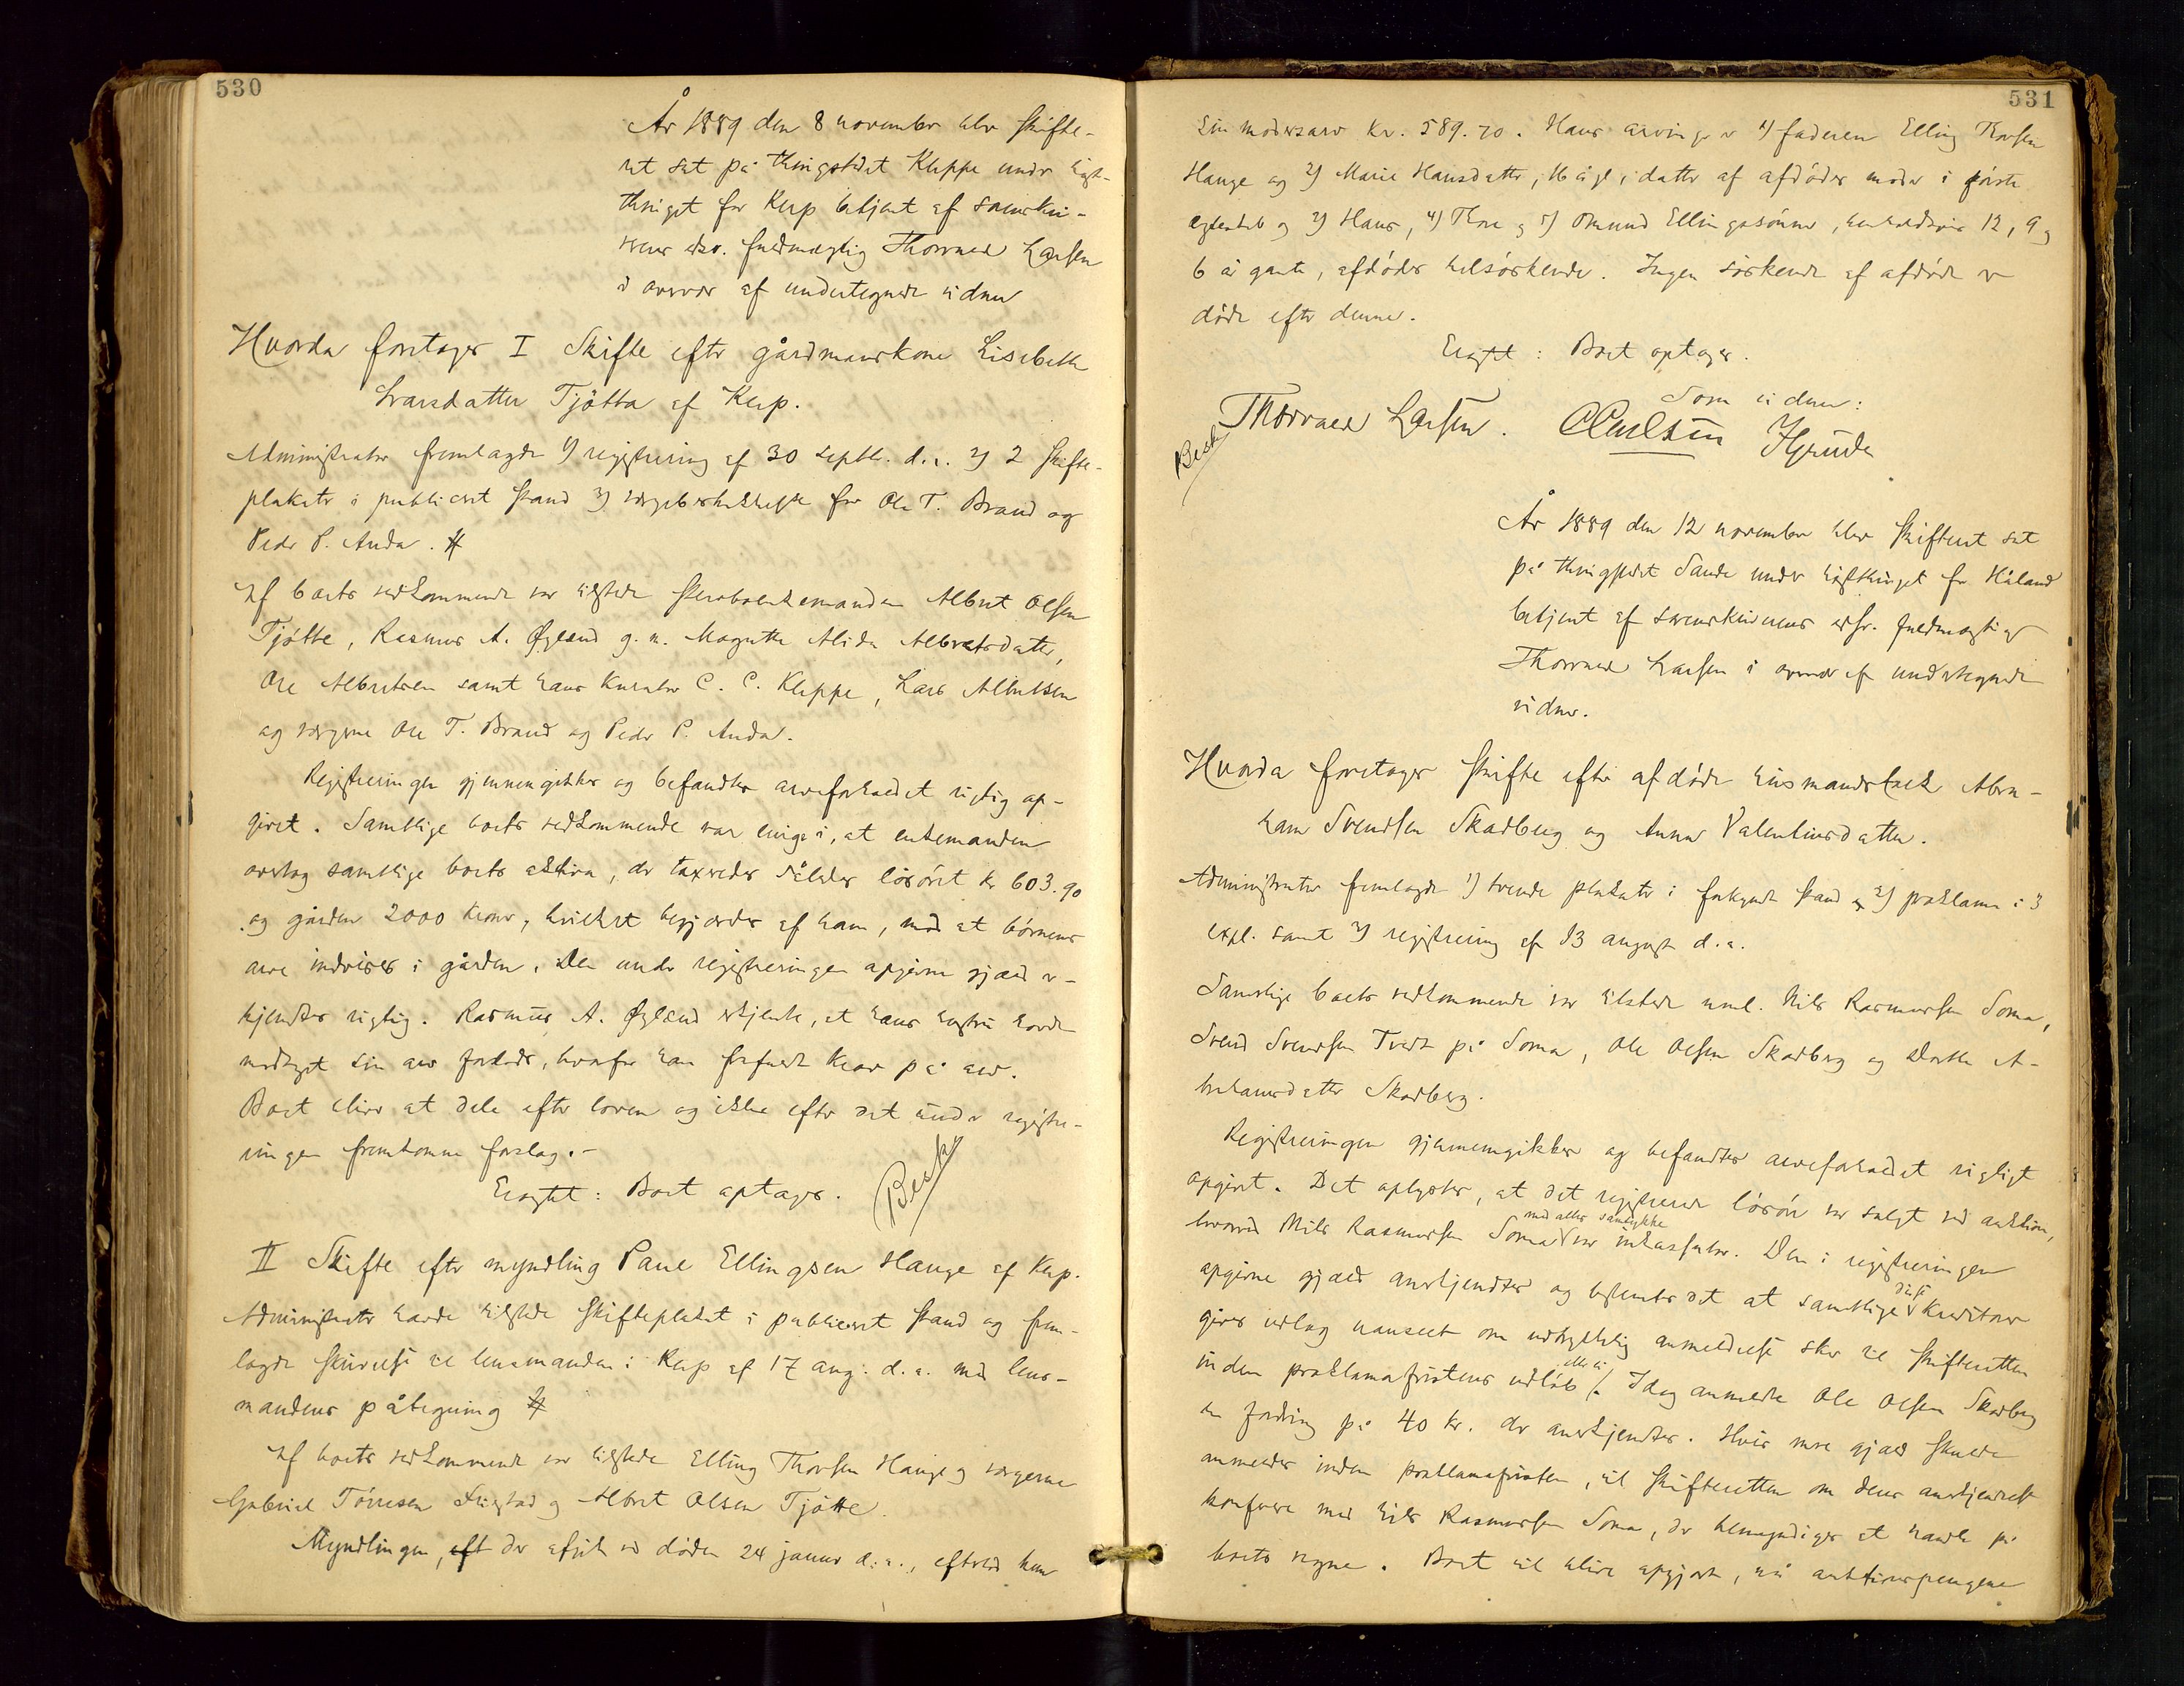 530
År 1889 den 8 november blev skifte-
ret sat på thingstedet Kleppe under høst-
thinget for Klep betjent af sorenskri-
verens edsv. fuldmægtig Thorvald Larsen
i overvær af undertegnede vidner
Hvorda foretages I Skifte efter gårdmandskone Lisebeth
Ivarsdatter Tjøtta af Klep.
Administrator fremlagde 1) registrering af 30 septbr. d.a. 2) 2 skifte-
plakater i publiceret stand 3) værgebeskikkelse for Ole T. Braud og
Peder P. Anda. #
Af boets vedkommende var tilstede skrabsenkemanden Albert Olsen
Tjøtte, Rasmus A. Øglænd g. m. Magrethe Alida Albretsdatter,
Ole Albretsen samt hans kurator C. C. Kleppe, Lars Albretsen
og værgerne Ole T. Braud og Peder P. Anda.
Registreringen gjennemgikkes og befandtes arveforholdet rigtig op-
givet. Samtlige boets vedkommende var enige i, at enkemanden
overtog samtlige boets aktiva, der taxeredes således løsøret kr 603.90
og gården 2000 kroner, hvilket begjærdes af ham, mod at børnenes
arv indvises i gården. Den under registreringen opgivne gjæld er-
kjendtes rigtig. Rasmus A. Øglænd erkjendte, at hans hustru havde
modtaget sin arv forlods, hvorfor han frafaldt krav på arv.
Boet bliver at dele efter loven og ikke efter det under registre-
ringen fremkomne forslag.-
Eragtet: Boet optages.
Besk
II Skifte efter myndling Paul Ellingsen Hauge af Klep.
Administrator havde tilstede skifteplakat i publiceret stand og frem-
lagde skrivelse til lensmanden i Klep af 17 aug. d.a. med lens-
mandens påtegning #
Af boets vedkommende var tilstede Elling Thorsen Hauge og værgerne
Gabriel Tønnesen Friestad og Albret Olsen Tjøtte.
Myndlingen, der afgik ved døden 24 januar d.a., efterlod kun
531
sin mødrearv kr. 589.70. Hans arvinger er 1) faderen Elling Thorsen
Hauge og 2) Marie Hansdatter, 16 år gl., datter af afdødes moder i første
egteskab og 3) Hans, 4) Thore og 5) Omund Ellingsønner, henholdsvis 12, 9 og
6 år gamle, afdødes helsøskende. Ingen søskende af afdøde er
døde efter denne.
Eragtet: Boet optages.
Som vidner:
Thorvald Larsen. CCarlsen HGrude
Besk
År 1889 den 12 november blev skifteret sat
på thingstedet Sande under høstthinget for Håland
betjent af sorenskriverens edsv. fuldmægtig
Thorvald Larsen i overvær af undertegnede
vidner.
Hvorda foretages skifte efter afdøde husmandsfolk Abra-
ham Svendsen Skadberg og Anna Valentinsdatter.
Administrator fremlagde 1) tvende plakater i forkyndt stand og 2) proklama i 3
expl. samt 3) registrering af 13 august d.a.
Samtlige boets vedkommende var tilstede neml. Nils Rasmussen Soma,
Svend Svendsen Tvedt på Soma, Ole Olsen Skadberg og Dorthe A-
brahamsdatter Skadberg.
Registreringen gjennemgikkes og befandtes arveforholdet rigtigt
opgivet. Det oplystes, at det registrerede løsøre var solgt ved auktion,
hvorved Nils Rasmussen Soma med alles samtykke var inkassator. Den i registreringen
opgivne gjæld anerkjendtes og bestemtes det at samtlige disse kreditorer
gives udlæg uanseet om udtrykkelig anmeldelse sker til skifteretten
inden proklamafristens udløb eller ei. Idag anmeldte Ole Olsen Skadberg
en fordring på 40 kr. der anerkjendtes. Hvis mere gjæld skulde
anmeldes inden proklamafristen, vil skifteretten om dens anerkjendelse
konferere med Nils Rasmussen Soma, der bemyndiges at handle på
boets vegne. Boet vil blive opgjort, når auktionspengene